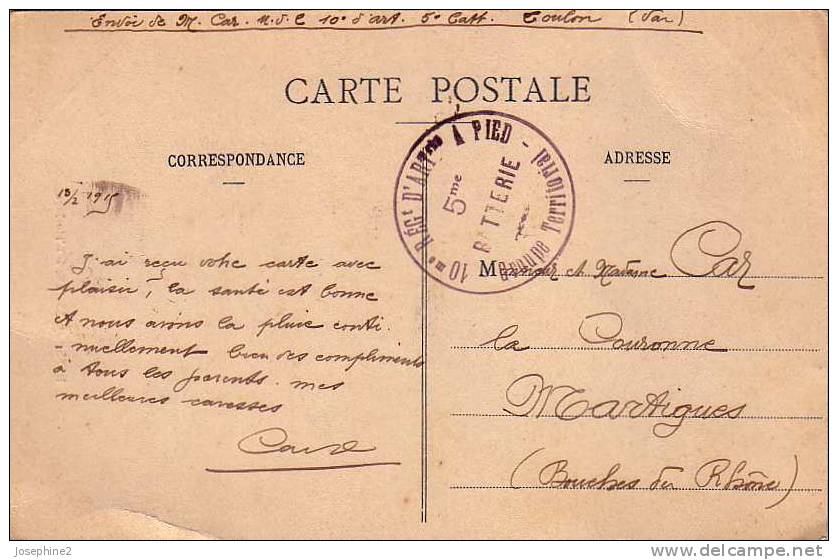 Envoi de M. Car. M.d.L 10e d'art. 5e batt. Toulon (Var)
CARTE POSTALE
CORRESPONDANCE
ADRESSE
10me RÉGt D'ARTrie A PIED - Groupe Territorial
5me
BATTERIE
13/2 1915
J'ai reçu votre carte avec
plaisir, la santé est bonne
et nous avons la pluie conti
-nuellement bien des compliments
à tous les parents. mes
meilleures caresses
Monsieur et Madame Car
la Couronne
Martigues
(Bouches du Rhône)
Josephine2
www.delcampe.net